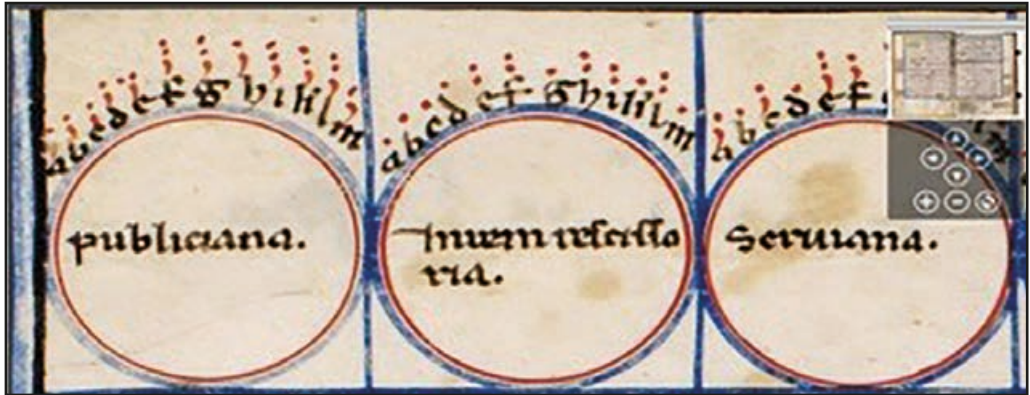 a b c d e f g h i k l m
publiciana.
a b c d e f g h i k l m
Inrem rescisso
ria.
a b c d e f
Seruiana.